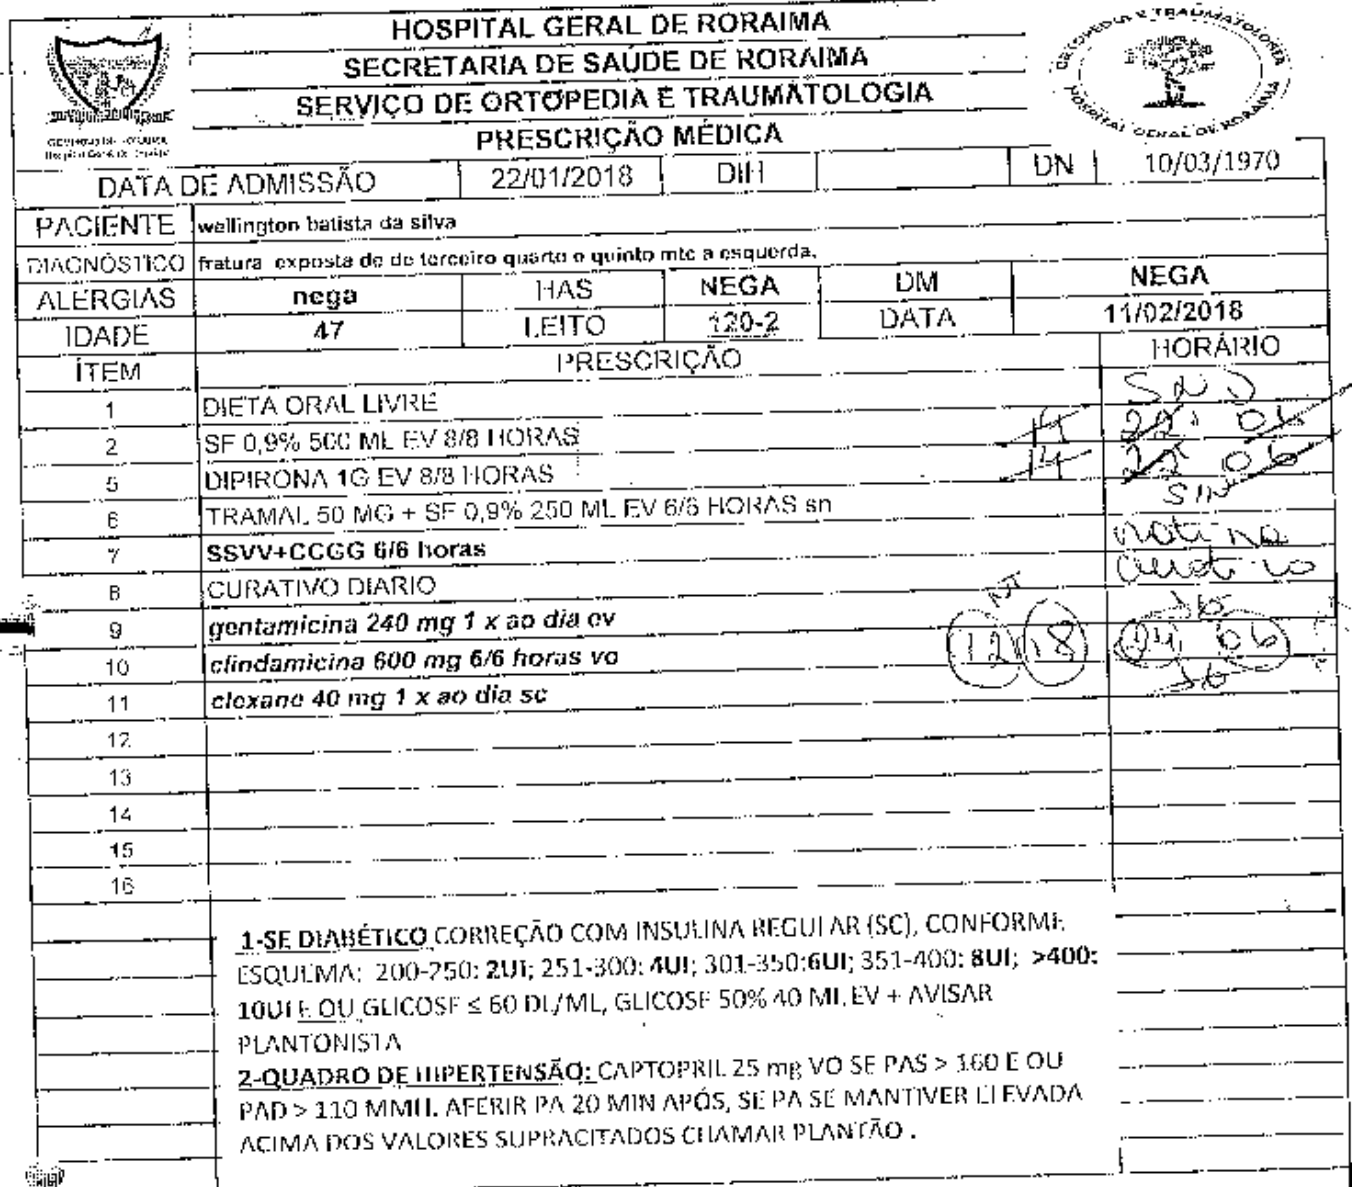 HOSPITAL GERAL DE RORAIMA
SECRETARIA DE SAÚDE DE RORAIMA
SERVIÇO DE ORTOPEDIA E TRAUMATOLOGIA
PRESCRIÇÃO MÉDICA
ORTOPEDIA E TRAUMATOLOGIA
HOSPITAL GERAL DE RORAIMA
DATA DE ADMISSÃO 22/01/2018 DIH DN 10/03/1970
PACIENTE wellington batista da silva
DIAGNÓSTICO fratura exposta de de terceiro quarto e quinto mtc a esquerda.
ALERGIAS nega HAS NEGA DM NEGA
IDADE 47 LEITO 120-2 DATA 11/02/2018
ÍTEM PRESCRIÇÃO HORÁRIO
1 DIETA ORAL LIVRE SND
2 SF 0,9% 500 ML EV 8/8 HORAS 14 22 06
5 DIPIRONA 1G EV 8/8 HORAS 14 22 06
6 TRAMAL 50 MG + SF 0,9% 250 ML EV 6/6 HORAS sn S/N
7 SSVV+CCGG 6/6 horas rotina
8 CURATIVO DIARIO curativo
9 gentamicina 240 mg 1 x ao dia ev 16
10 clindamicina 600 mg 6/6 horas vo 12 18 06
11 clexane 40 mg 1 x ao dia sc 16
12
13
14
15
16
1-SE DIABÉTICO CORREÇÃO COM INSULINA REGULAR (SC), CONFORME
ESQUEMA: 200-250: 2UI; 251-300: 4UI; 301-350:6UI; 351-400: 8UI; >400:
10UI E OU GLICOSE ≤ 60 DL/ML, GLICOSE 50% 40 ML EV + AVISAR
PLANTONISTA
2-QUADRO DE HIPERTENSÃO: CAPTOPRIL 25 mg VO SE PAS > 160 E OU
PAD > 110 MMH. AFERIR PA 20 MIN APÓS, SE PA SE MANTIVER ELEVADA
ACIMA DOS VALORES SUPRACITADOS CHAMAR PLANTÃO .